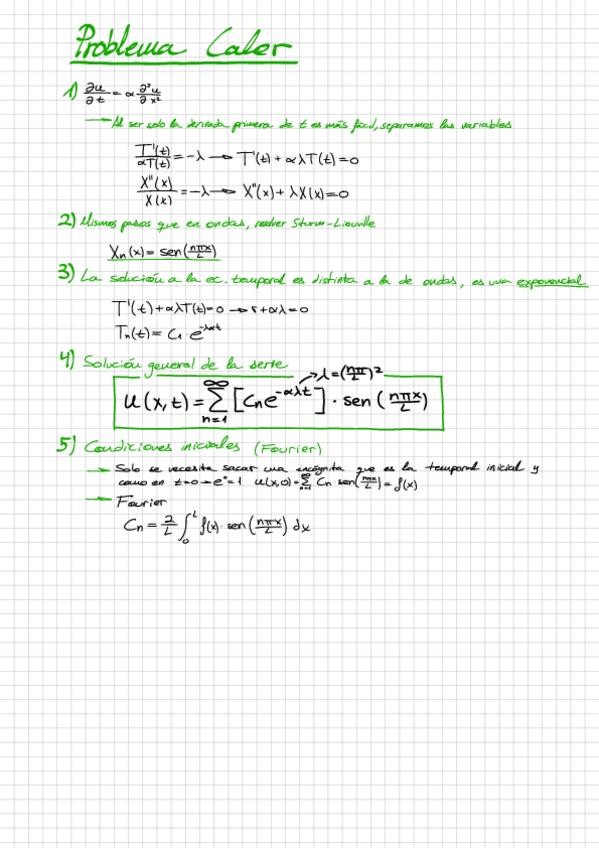 Problema Calor
1) ∂u/∂t = α ∂²u/∂x²
→ Al ser solo la derivada primera de t es más fácil, separamos las variables
T'(t)/αT(t) = -λ → T'(t) + αλT(t) = 0
X''(x)/X(x) = -λ → X''(x) + λX(x) = 0
2) Mismos pasos que en ondas, resolver Sturm-Liouville
Xn(x) = sen(nπx/L)
3) La solución a la ec. temporal es distinta a la de ondas, es una exponencial
T'(t) + αλT(t) = 0 → r + αλ = 0
Tn(t) = C₁ · e^-λαt
4) Solución general de la serie
→ λ = (nπ/L)²
u(x,t) = ∑_{n=1}^{∞} [Cn e^-αλt] · sen(nπx/L)
5) Condiciones iniciales (Fourier)
→ Solo se necesita sacar una incógnita que es la temporal inicial y
como en t=0 → e⁰=1 u(x,0) = ∑_{n=1}^{∞} Cn · sen(nπx/L) = f(x)
→ Fourier
Cn = 2/L ∫_0^L f(x) · sen(nπx/L) dx